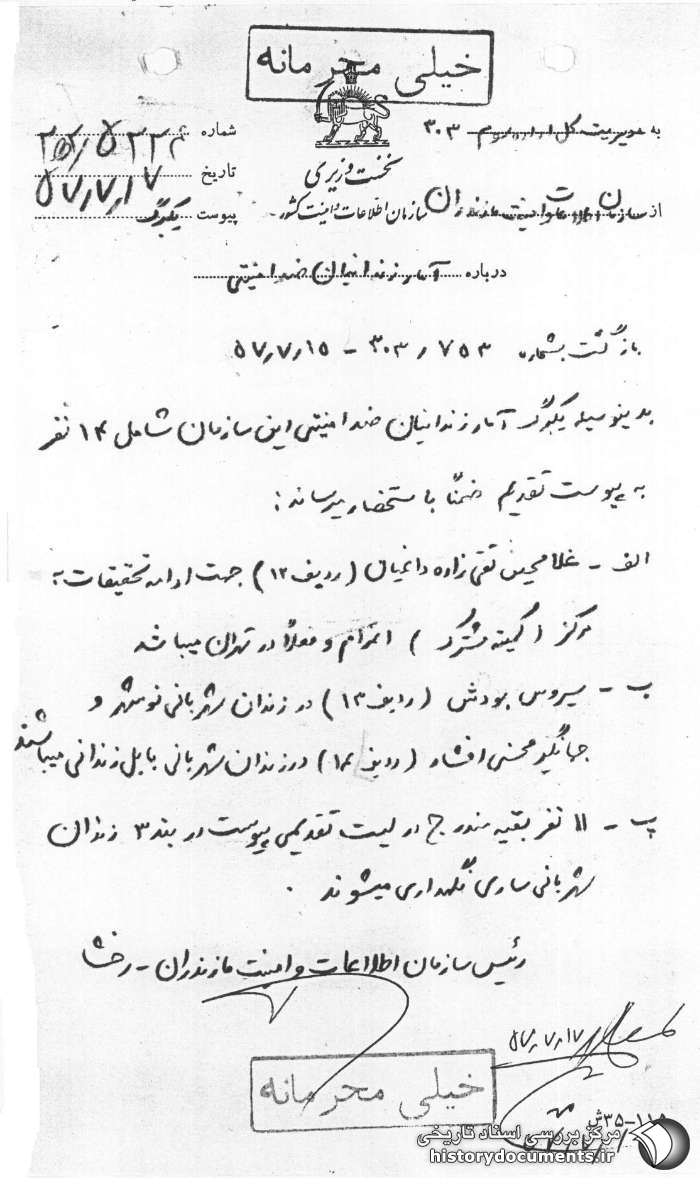 خیلی محرمانه
به مدیریت کل اداره سوم ۳۰۳
شماره ۲۵ر۵۳۲۴
نخست وزیری
تاریخ ۵۷ر۷ر۱۷
از سازمان اطلاعات و امنیت مازندران
سازمان اطلاعات و امنیت کشور
پیوست یکبرگ
درباره آمار زندانیان ضد امنیتی
بازگشت بشماره ۷۵۳ر۳۰۳ – ۵۷ر۷ر۱۵
بدینوسیله یکبرگ آمار زندانیان ضد امنیتی این سازمان شامل ۱۴ نفر
به پیوست تقدیم ضمناً باستحضار میرساند:
الف – غلامحسین تقی زاده دامغیان (ردیف ۱۲) جهت ادامه تحقیقات به
مرکز (کمیته مشترک) اعزام و فعلاً در تهران میباشد
ب – سیروس بودش (ردیف ۱۳) در زندان شهربانی نوشهر و
جهانگیر محسنی افشار (ردیف ۱۴) در زندان شهربانی بابل زندانی میباشند
پ – ۱۱ نفر بقیه مندرج در لیست تقدیمی پیوست در بند ۳ زندان
شهربانی ساری نگهداری میشوند .
رئیس سازمان اطلاعات و امنیت مازندران – رخشا
۵۷ر۷ر۱۷
خیلی محرمانه
۳۵–۱۱۵ش
مرکز بررسی اسناد تاریخی
historydocuments.ir